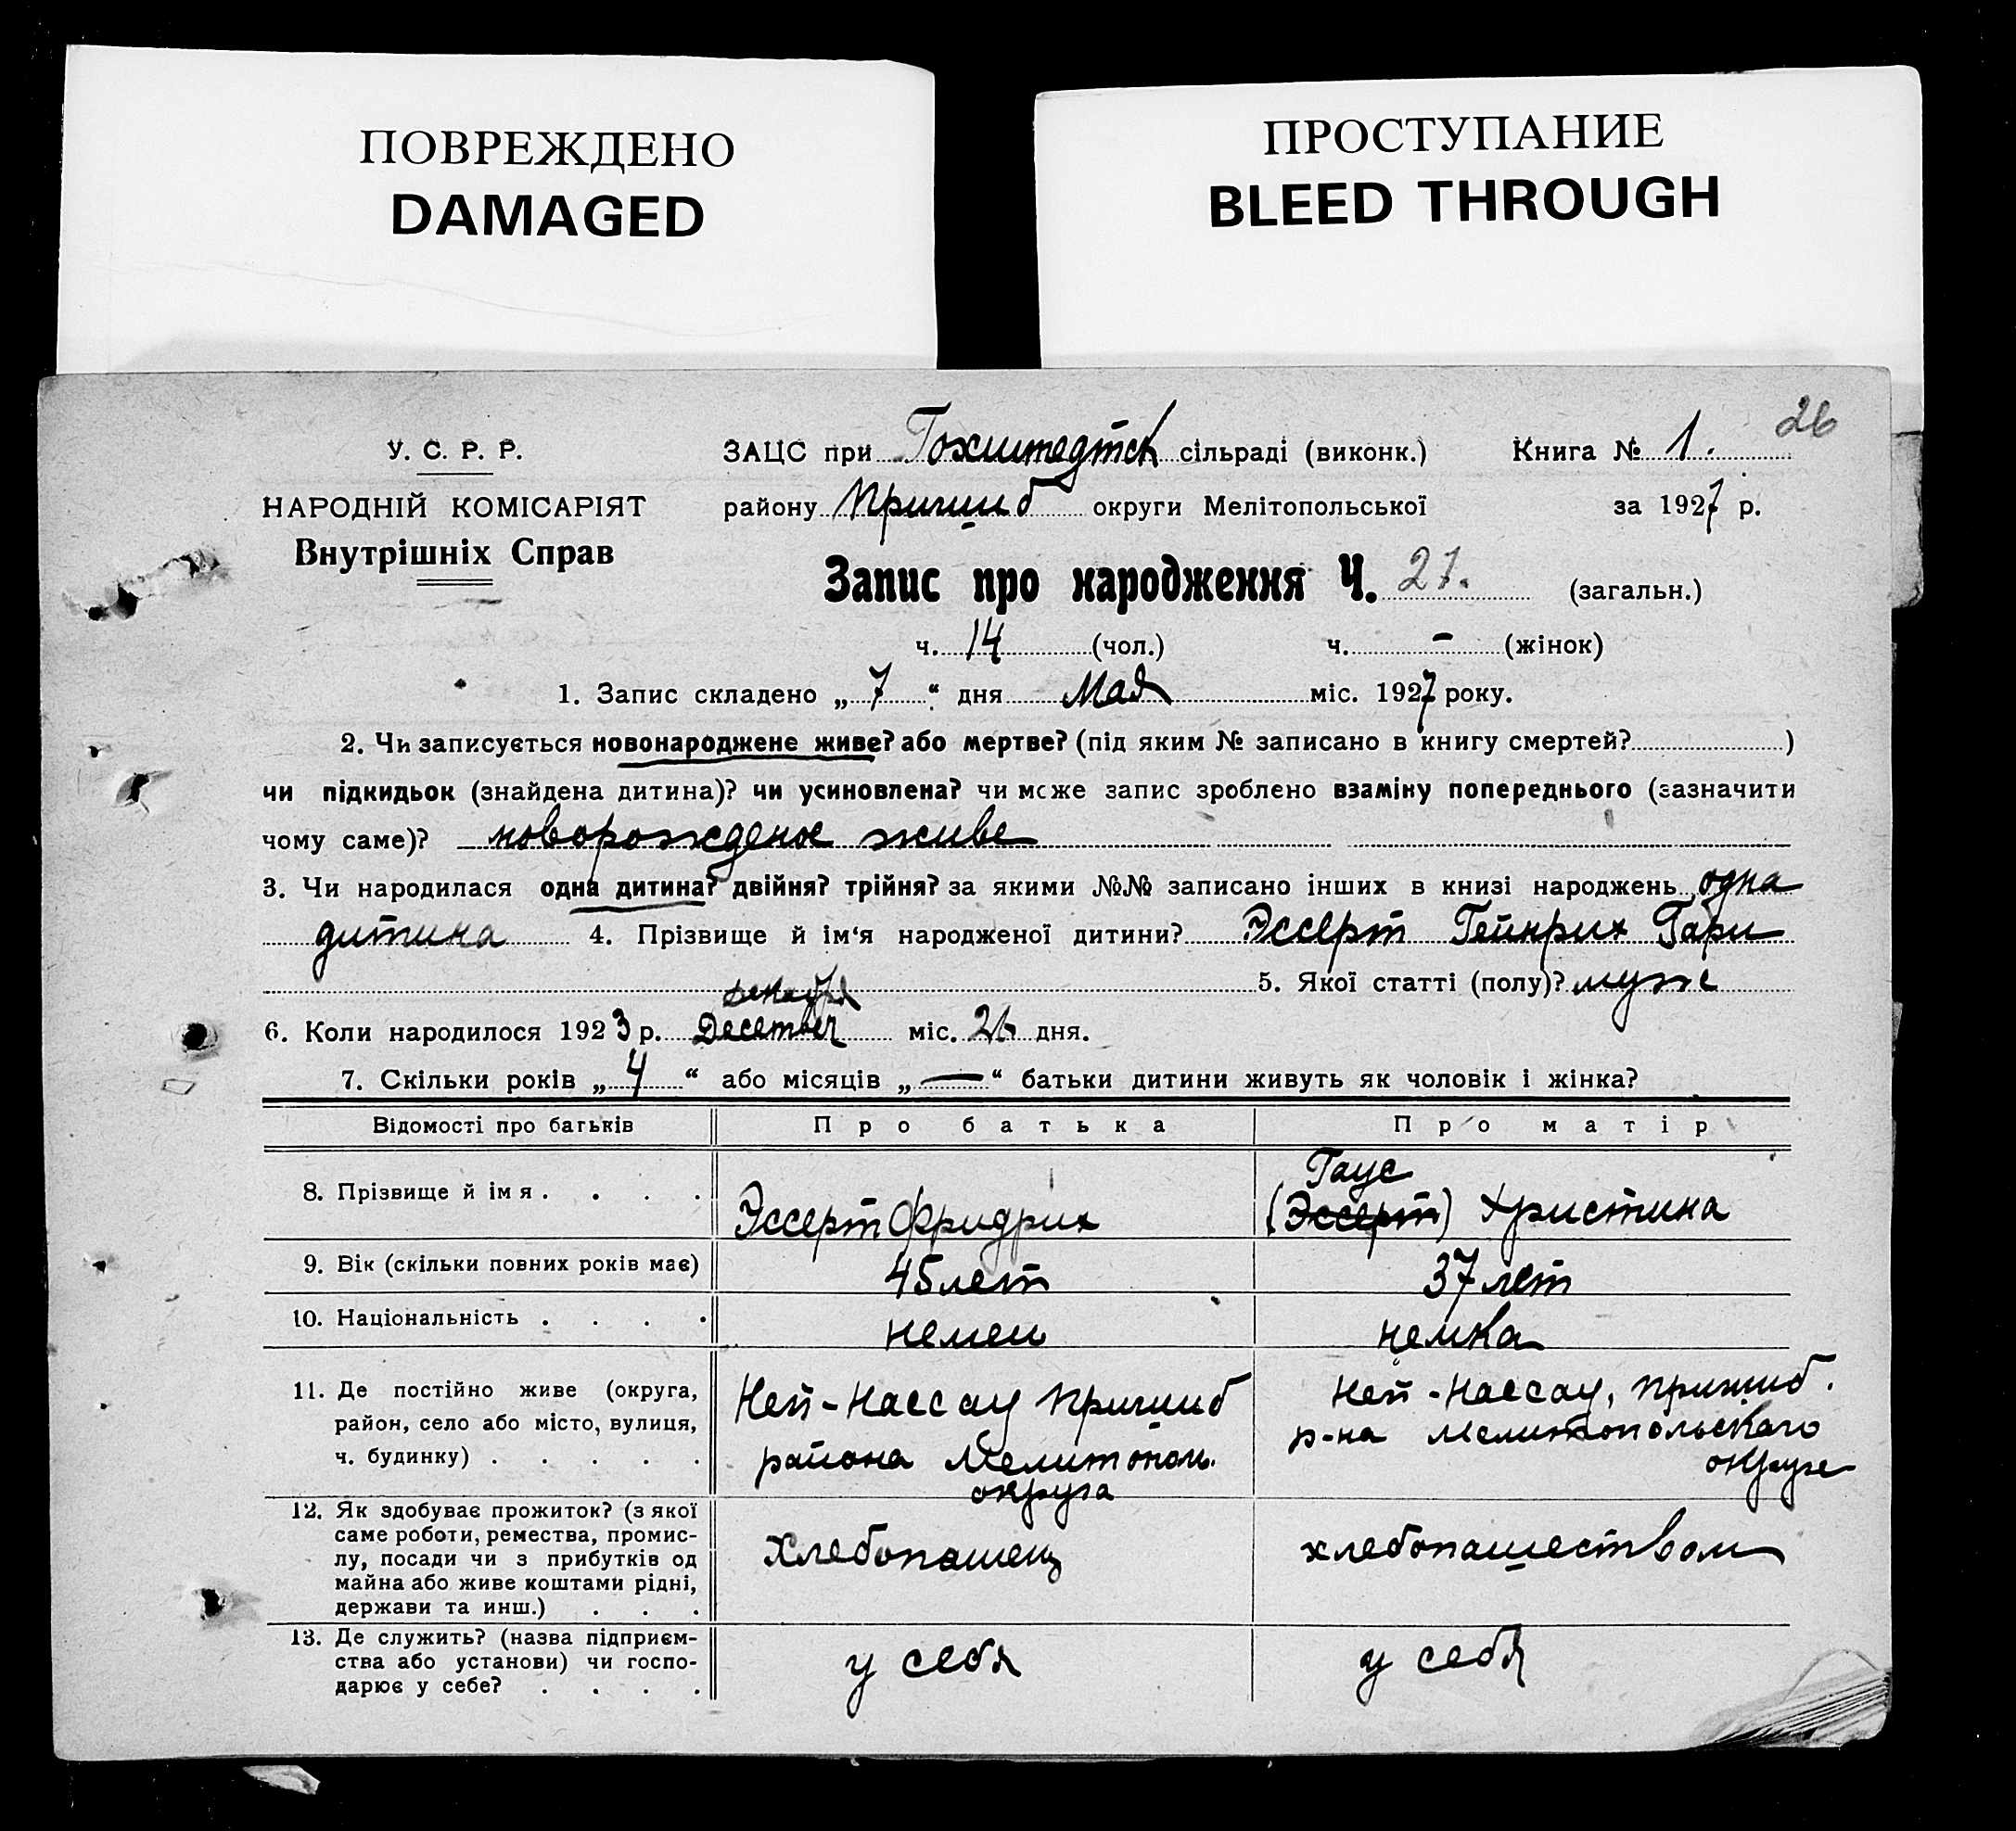 ПОВРЕЖДЕНО
DAMAGED
ПРОСТУПАНИЕ
BLEED THROUGH
26
У. С. Р. Р.
НАРОДНІЙ КОМІСАРІЯТ
Внутрішніх Справ
ЗАЦС при Гохштедтск сільраді (виконк.) Книга № 1.
району Пришиб округи Мелітопольської за 1927 р.
Запис про народження Ч. 27. (загальн.)
ч. 14 (чол.) ч. – (жінок)
1. Запис складено „ 7 “ дня Мая міс. 1927 року.
2. Чи записується новонароджене живе? або мертве? (під яким № записано в книгу смертей? )
чи підкидьок (знайдена дитина)? чи усиновлена? чи може запис зроблено взаміну попереднього (зазначити
чому саме)? новорожденое живе
3. Чи народилася одна дитина? двійня? трійня? за якими №№ записано інших в книзі народжень одна
дитина 4. Прізвище й ім‘я народженої дитини? Эссерт Гейнрих Гари
5. Якої статті (полу)? муже
декабря
6. Коли народилося 1923 р. December міс. 26 дня.
7. Скільки років „ 4 “ або місяців „ — “ батьки дитини живуть як чоловік і жінка?
Відомості про батьків Про батька Про матір
Гаус
8. Прізвище й імя . . . . Эссерт Фридрих (Эссерт) Христина
9. Вік (скільки повних років має) 45 лет 37 лет
10. Національність . . . . немец немка
11. Де постійно живе (округа,
район, село або місто, вулиця,
ч. будинку) . . . . .
Ней-Нассау Пришиб
района Мелитополь.
округа
Ней-Нассау, Пришиб.
р-на Мелитопольского
округе
12. Як здобуває прожиток? (з якої
саме роботи, ремества, промис-
лу, посади чи з прибутків од
майна або живе коштами рідні,
держави та инш.) . . .
Хлебопашец
хлебопашеством
13. Де служить? (назва підприєм-
ства або установи) чи госпо-
дарює у себе? . . . .
у себя
у себя